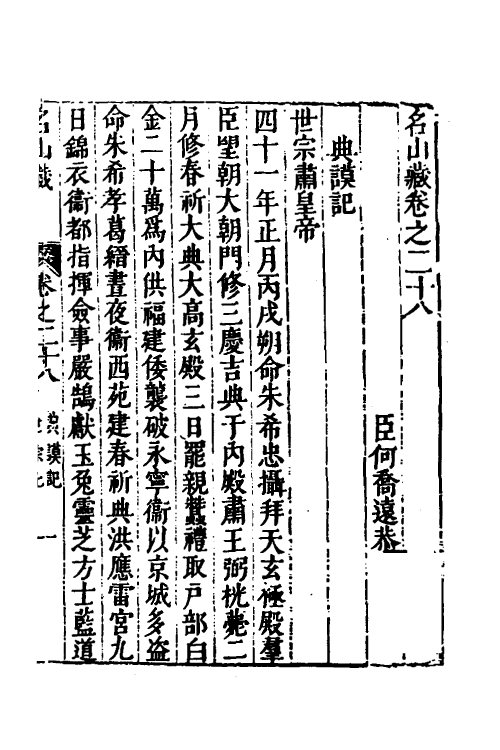 名山藏卷之二十八
臣何喬遠恭
典謨記
世宗肅皇帝
四十一年正月丙戌朔命朱希忠攝拜天玄極殿羣
臣望朝大朝門修三慶吉典于内殿肅王弼桄薨二
月修春祈大典大高玄殿三日罷親蠶禮取戸部白
金二十萬爲内供福建倭襲破永寧衞以京城多盜
命朱希孝葛縉晝夜衞西苑建春祈典洪應雷宫九
日錦衣衞都指揮僉事嚴鵠獻玉兔靈芝方士藍道
名山藏
卷之二十八
典謨記
一